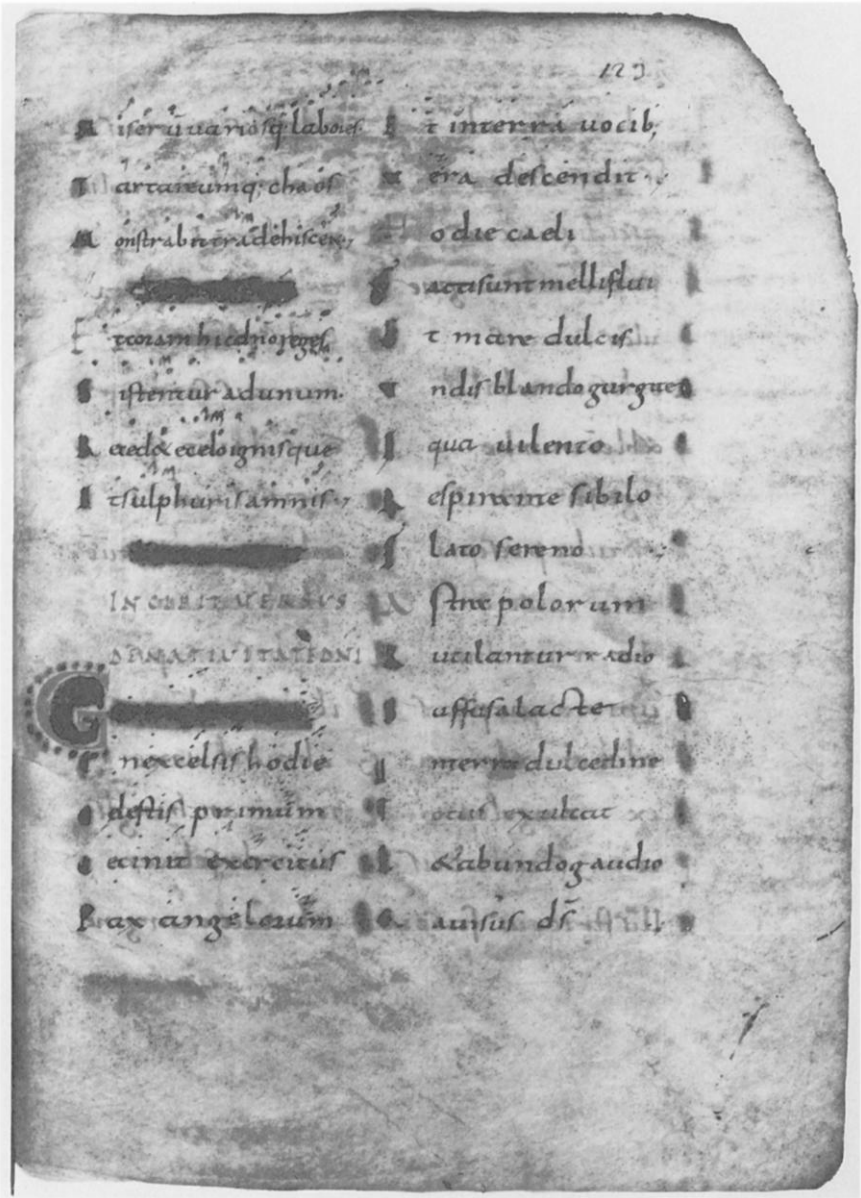 129
Miserū uariosq; labores
Tartareumq; chaos
Monstrabit tra dehiscens
Et coram hic dno reges
Sistentur ad unum.
Recid& e celo ignisque
Et sulphuris amnis
INCIPIT VERSUS
DE NATIVITATE DNI
G
In excelsis hodie
celestis primum
cecinit exercitus
Pax angelorum
Et in terra uocib;
uera descendit
Hodie caeli
facti sunt melliflui
Et mare dulcis
undis blando gurgite
Aqua ui lento
Respirante sibilo
flato sereno
Astrae polorum
Rutilantur radio
Suffusa lacte
In terra dulcedine
Totus exultat
L&abundo gaudio
Gauisus ds̄